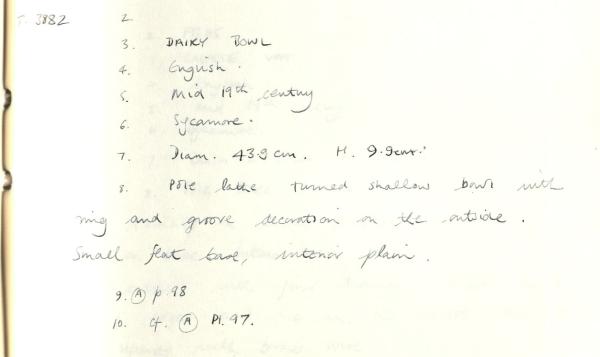 T. 3882 2
3. DAIRY BOWL
4. English.
5. Mid 19th century
6. Sycamore.
7. Diam. 43.9 cm. H. 9.9cm.
8. Pole lathe turned shallow bowl with
ring and groove decoration on the outside.
Small flat base, interior plain.
9. (A) p.98
10. cf. (A) Pl. 97.